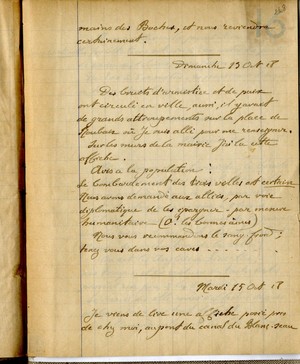 168
mains des Boches, et nous reviendra
certainement.
Dimanche 13 Oct 18
Des bruits d'armistice et de paix
ont circulé en ville, aussi, il y avait
de grands attroupements sur la place de
Roubaix où je suis allé pour me renseigner.
Sur les murs de la mairie j'ai lu cette
affiche.
Avis a la population :
Le bombardement des trois villes est certain
Nous avons demandé aux alliés, par voie
diplomatique de les épargner - par mesure
humanitaire (O! les bonnes âmes)
Nous vous recommandons le sang-froid;
tenez vous dans vos caves
Mardi 15 Oct 18
Je viens de lire une affiche posée près
de chez moi, au pont du canal du Blanc-seau